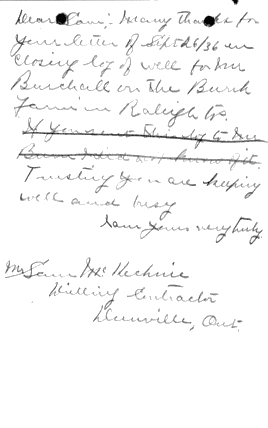 Dear Sam: Many thanks for
your letter of Sept 26/36 en
closing log of well for Mr
Burchall on the Burk
farm in Raleigh tp.
If you sent this log to Mr
I did not know of it.
Trusting you are keeping
well and busy
I am yours very truly
Mr Sam Mc Kechnie
Drilling Contractor
Dunnville, Ont.